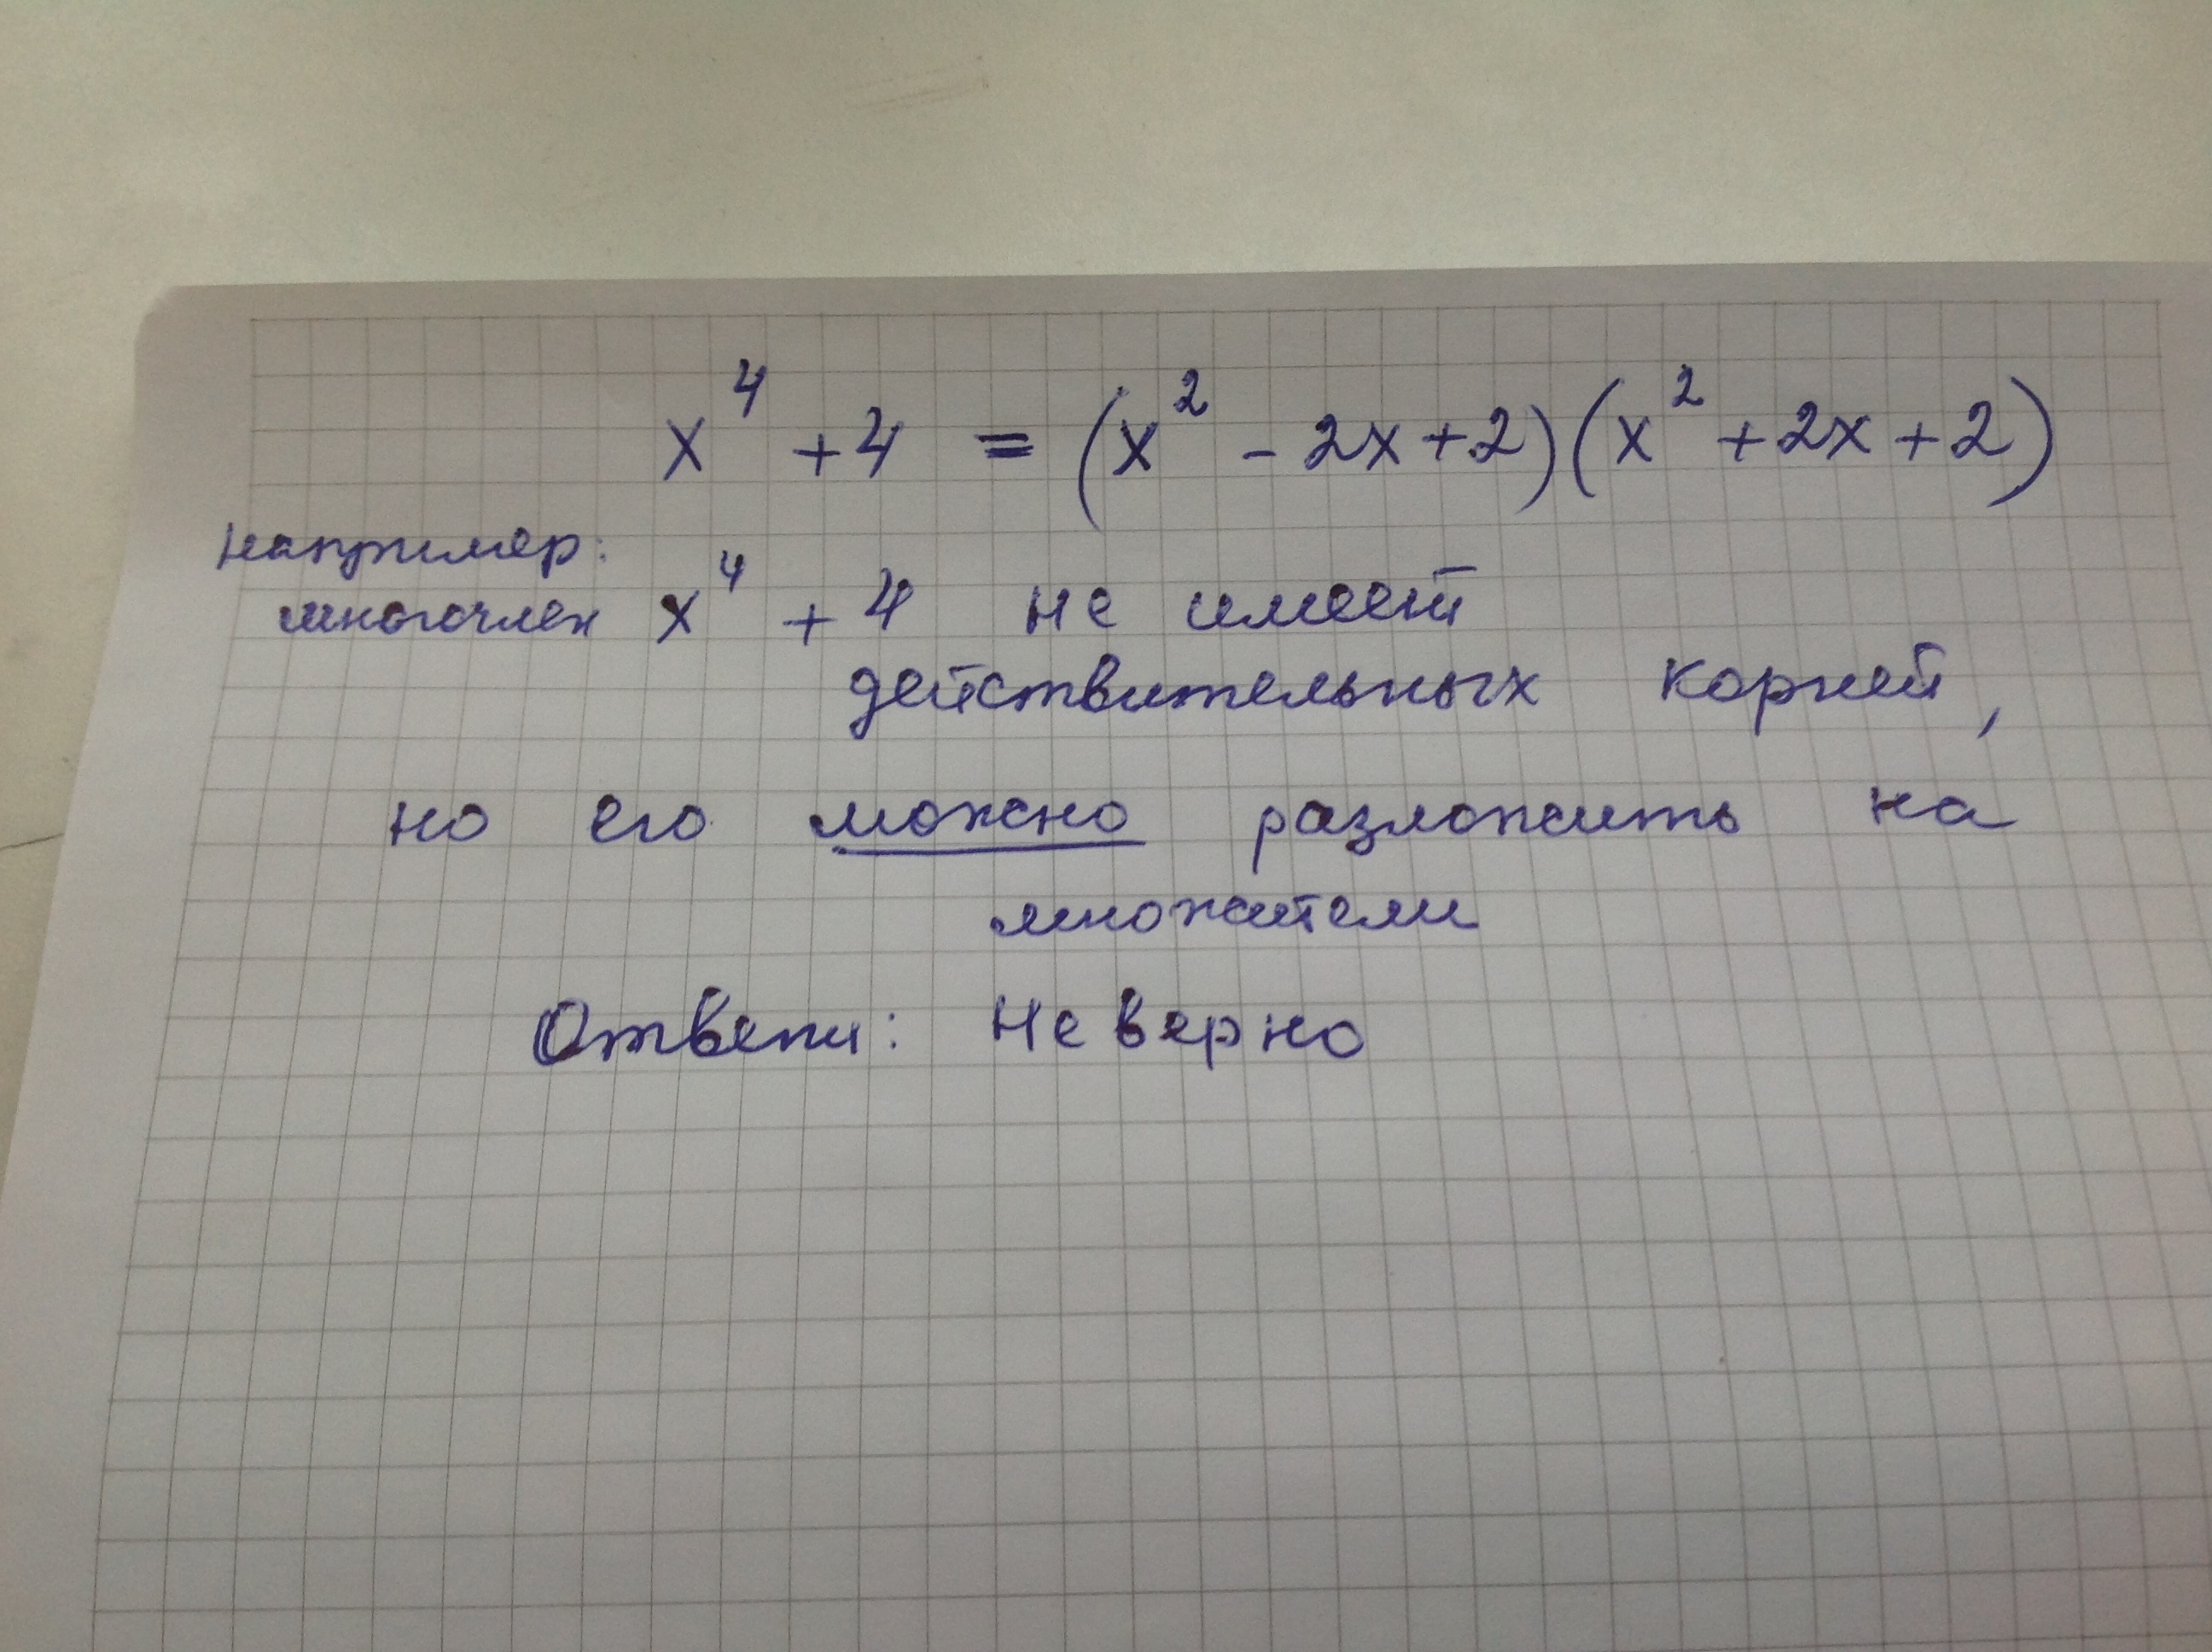 x⁴ + 4 = (x² - 2x + 2)(x² + 2x + 2)
например:
многочлен x⁴ + 4 не имеет
действительных корней,
но его можно разложить на
множители
Ответ: Неверно